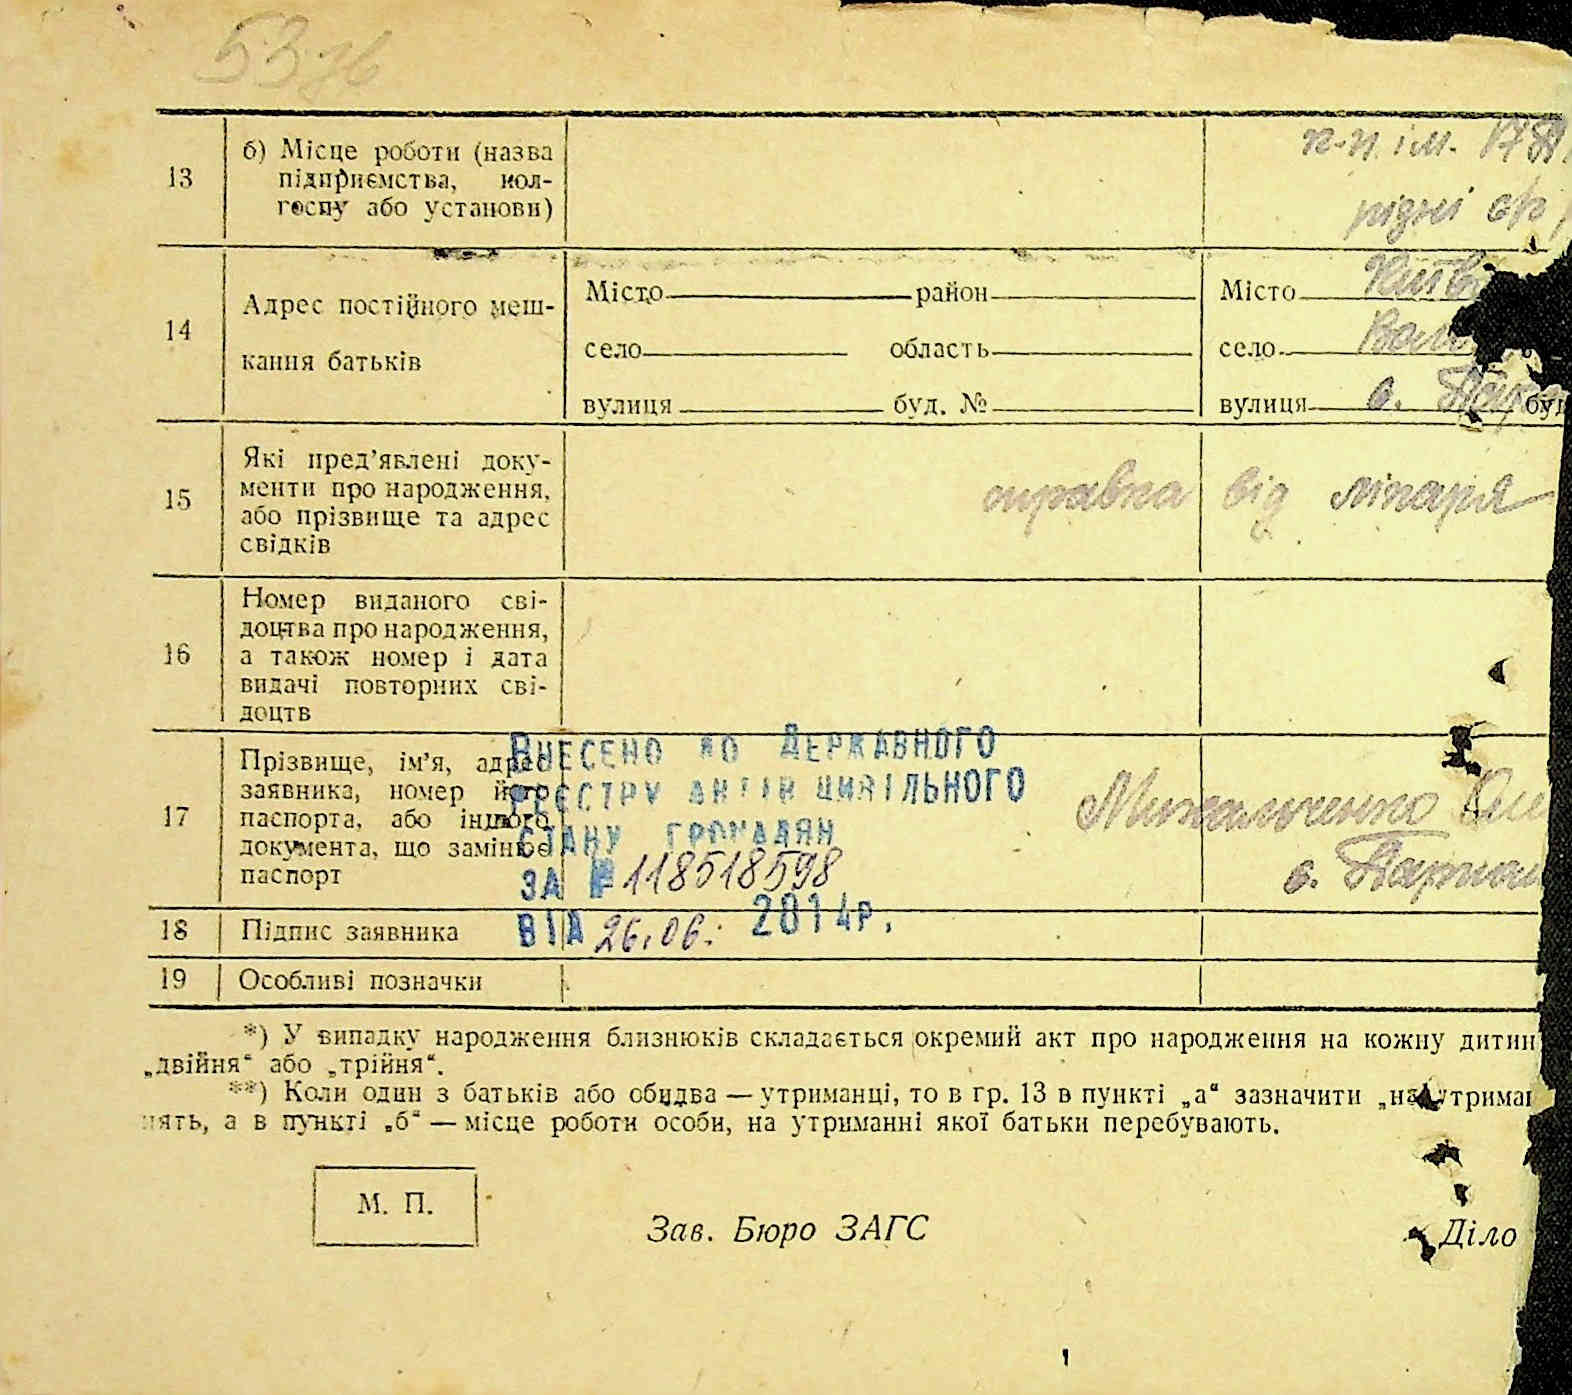 53
13
б) Місце роботи (назва
підприємства, кол-
госпу або установи)
п-п. ім.
рідні
14
Адрес постійного меш-
кання батьків
Місто район
село область
вулиця буд. №
Місто
село
вулиця с. буд
15
Які пред’явлені доку-
менти про народження,
або прізвище та адрес
свідків
справка від лікаря
16
Номер виданого сві-
доцтва про народження,
а також номер і дата
видачі повторних сві-
доцтв
17
Прізвище, ім’я, адрес
заявника, номер його
паспорта, або іншого
документа, що замінює
паспорт
Внесено до Державного
реєстру актів цивільного
стану громадян
за № 118518598
від 26.06. 2014р.
Михальченко
с.
18
Підпис заявника
19
Особливі позначки
*) У випадку народження близнюків складається окремий акт про народження на кожну дитин
„двійня“ або „трійня“.
**) Коли один з батьків або обидва — утриманці, то в гр. 13 в пункті „а“ зазначити „на утриман
нять, а в пункті „б“ — місце роботи особи, на утриманні якої батьки перебувають.
М. П.
Зав. Бюро ЗАГС
Діло